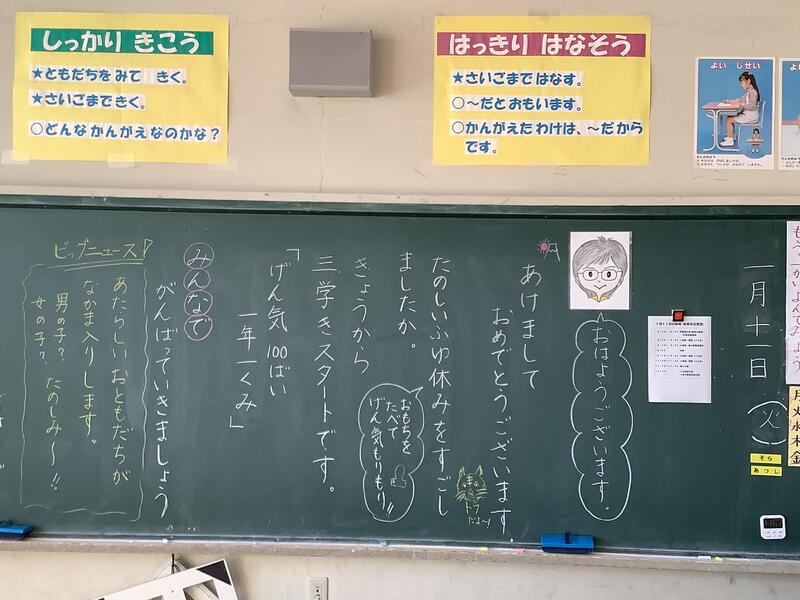 しっかり きこう
★ともだちを みて きく。
★さいごまで きく。
○どんな かんがえ なのかな?
はっきり はなそう
★さいごまで はなす。
○~だと おもいます。
○かんがえた わけは、~だから
です。
よい しせい
もう一かいよんでみよう
月火水木金
一月十一日(火)
そら
あつし
おはようございます。
あけまして
おめでとうございます。
たのしいふゆ休みをすごし
ましたか。
トラ
だよ~!
おもちを
たべて
げん気もりもり!!
きょうから
三学きスタートです。
「げん気100ばい
一年一くみ」
みんなで
がんばっていきましょう。
ビッグニュース!
あたらしいおともだちが
なかま入りします。
男の子?
女の子?
たのしみ~!!